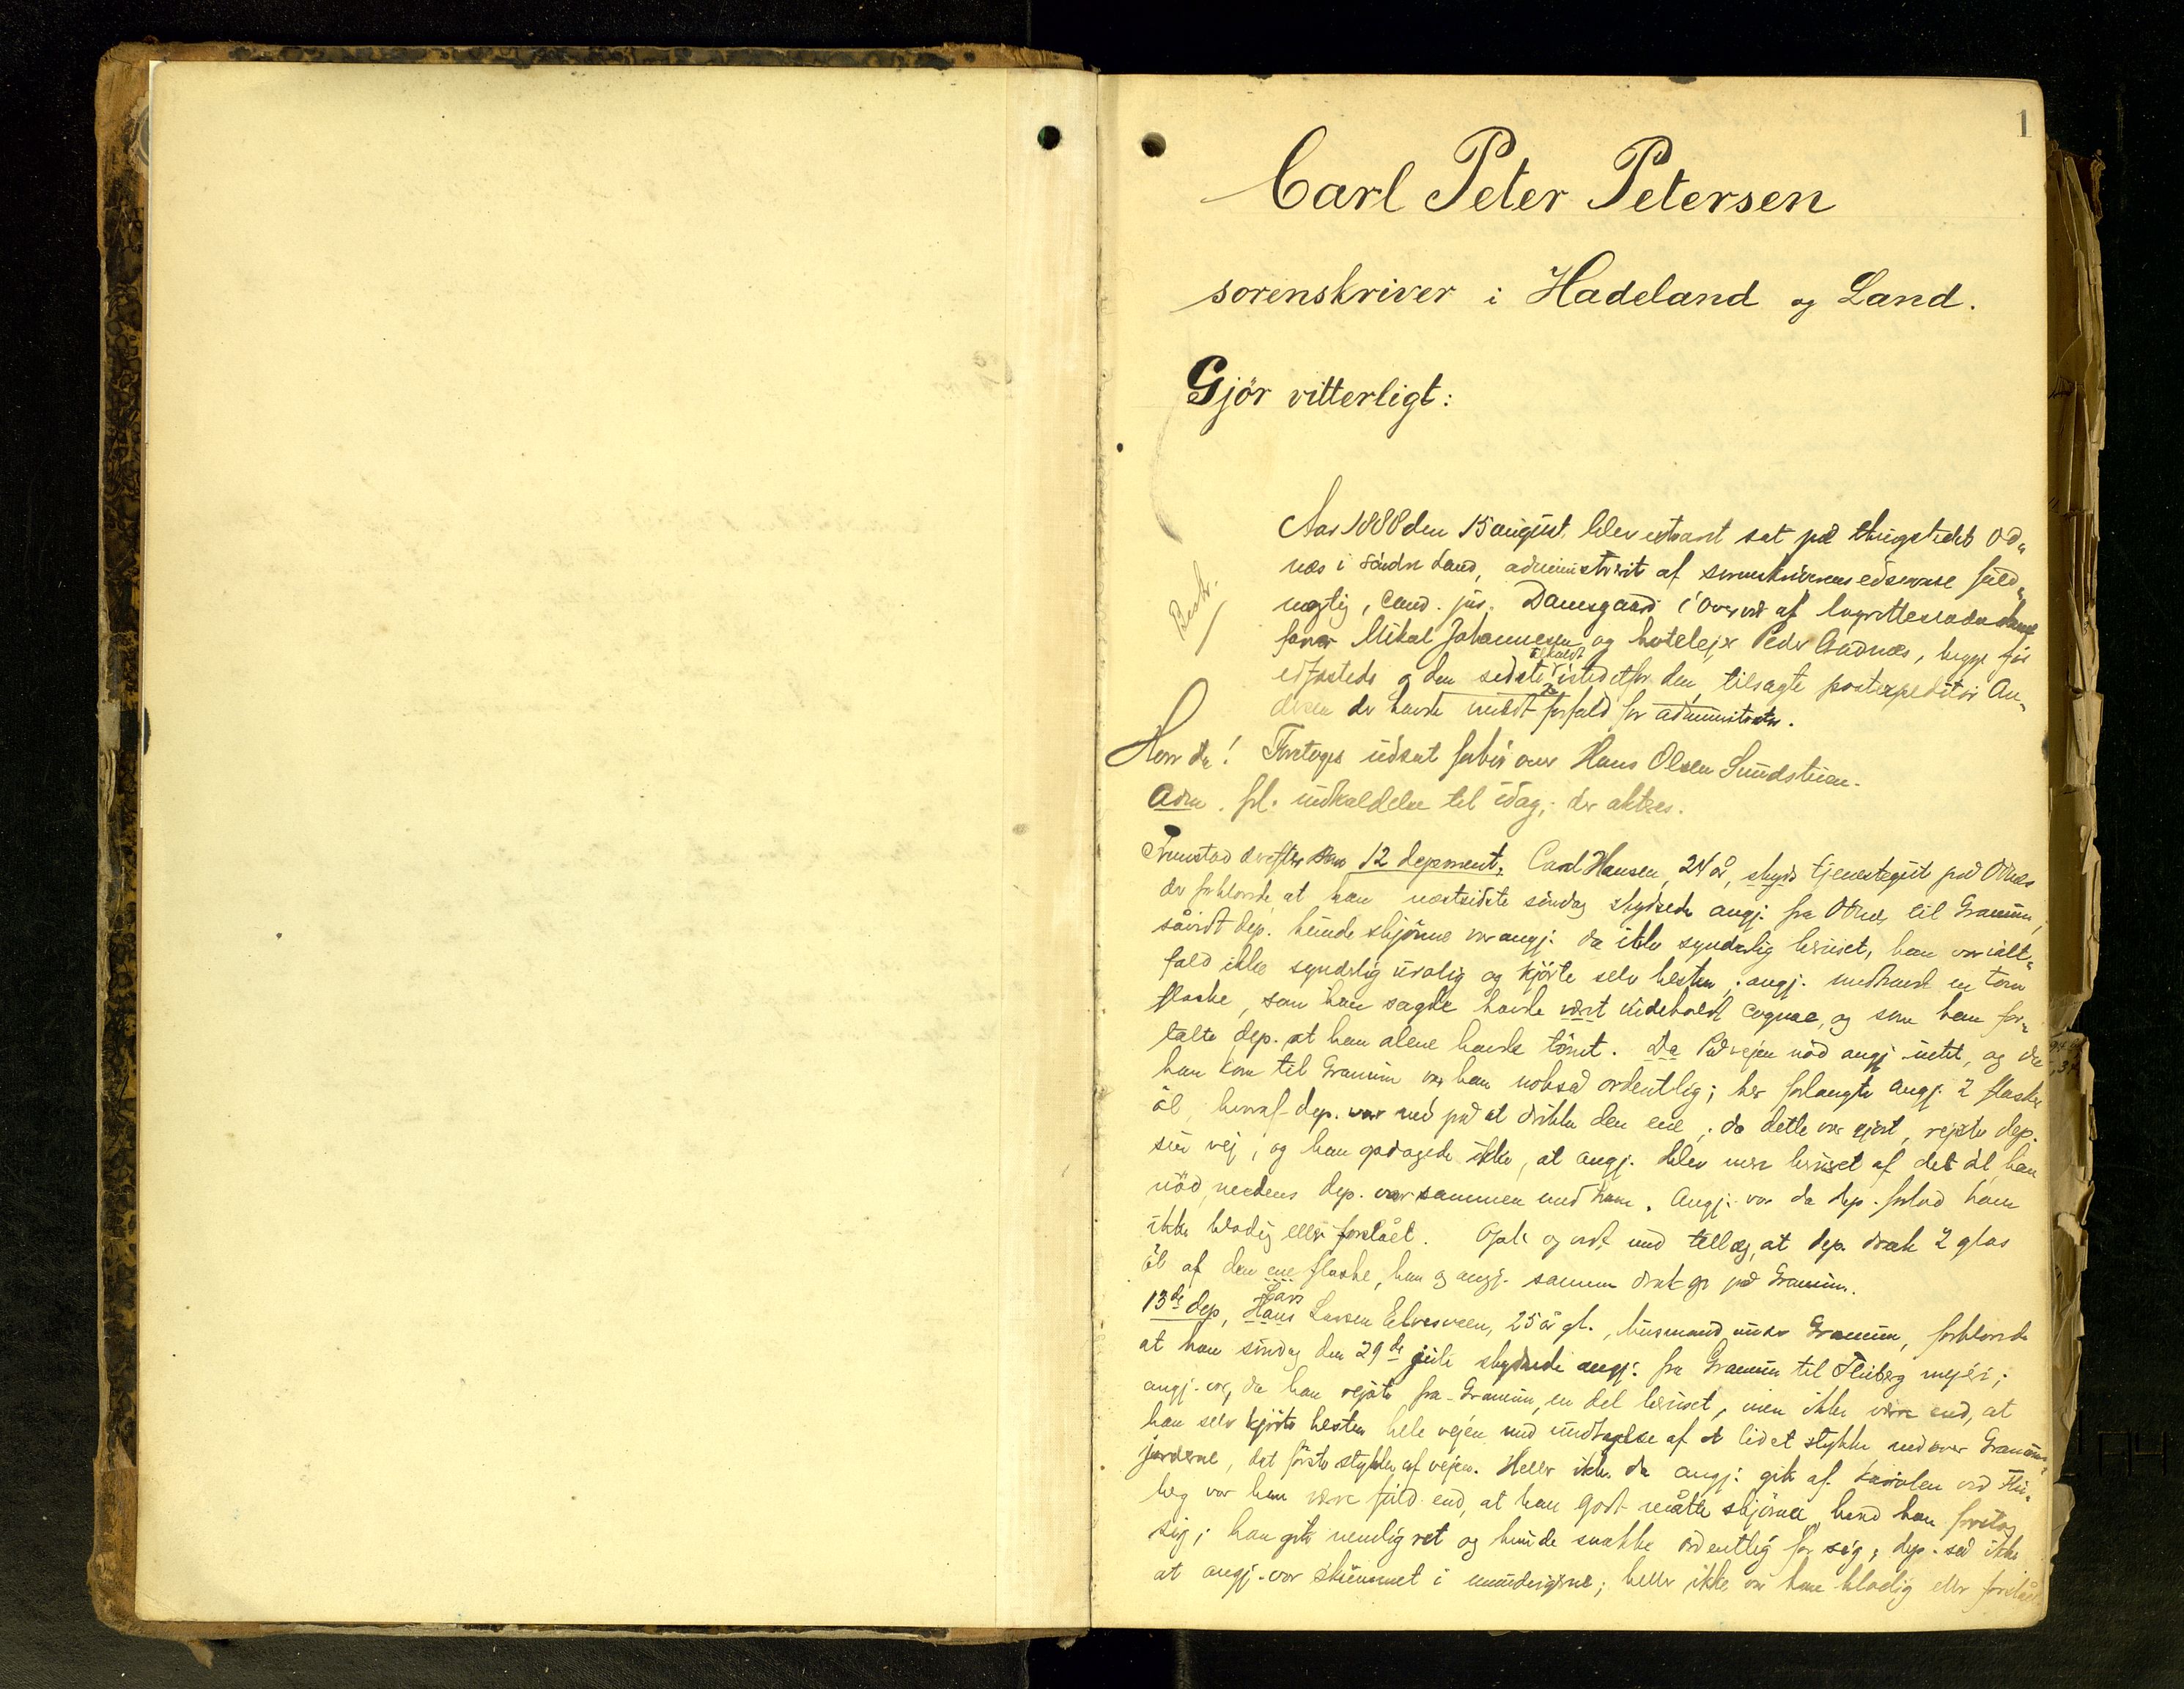 1
Carl Peter Petersen
sorenskriver i Hadeland og Land.
Gjör vitterligt:
Beskr.
Aar 1888 den 15 august blev extraret sat på thingstedet Od„
næs i Söndre Land, administreret af sorenskriverens edsvorne fuld„
mægtig, cand. jur. Damsgaard i overvær af lagrettesmændene
Mikal Johannesen og hoteleier Peder Aadnæs, begge för
edfæstede og den sidste tilkaldt istedetfor den tilsagte postexpeditör An„
dersen der havde meldt forfald for administrator.
Hvor da! Foretoges udsat forhör over Hans Olsen Sundstuen.
Adm. frl. indkaldelse til idag; der aktes.
Fremstod derefter som 12 deponent, Carl Hansen, 24 år, skyds tjenestegut på Odnæs
der forklarede, at han næstsidste söndag skydsede angj. fra Odnæs til Granum,
såvidt dep. kunde skjönne var angj. da ikke synderlig beruset, han var ialt„
fald ikke synderlig urolig og kjörte selv hesten; angj. medhavde en tom
flaske, som han sagde havde vært indeholdt cognac, og som han for„
talte dep. at han alene havde tömt. Da På vejen nöd angj. intet, og da
han kom til Granum var han nokså ordentlig; her forlangte angj. 2 flasker
öl, hvoraf dep. var med på at drikke den ene; da dette var gjort, rejste dep.
sin vej, og han opdagede ikke, at angj. blev mere beruset af det öl, han
nöd, medens dep. var sammen med ham. Angj. var da dep. forlod ham
ikke blodig eller forslået. Opl. og vedt. med tillæg, at dep. drak 2 glas
öl af den ene flaske, han og angj. sammen drak på Granum.
13de dep, Hans Lars Larsen Elvesveen, 25 år gl., husmand under Granum, forklarede
at han söndag den 29de juli skydsede angj. fra Granum til Fluberg mejeri;
angj. var, da han rejste fra Granum, en del beruset, men ikke værre end, at
han selv kjörte hesten hele vejen med undtagelse af et lidet stykke nedover Granums„
jorderne, det förste stykke af vejen. Heller ikke da angj. gik af kariolen ved Flu„
berg var han mere fuld end, at han godt måtte skjönne, hvad han foretog
sig; han gik nemlig ret og kunde snakke ordentlig for sig; dep. så ikke
at angj. var skummet i mundvigene; heller ikke var han blodig eller forslået